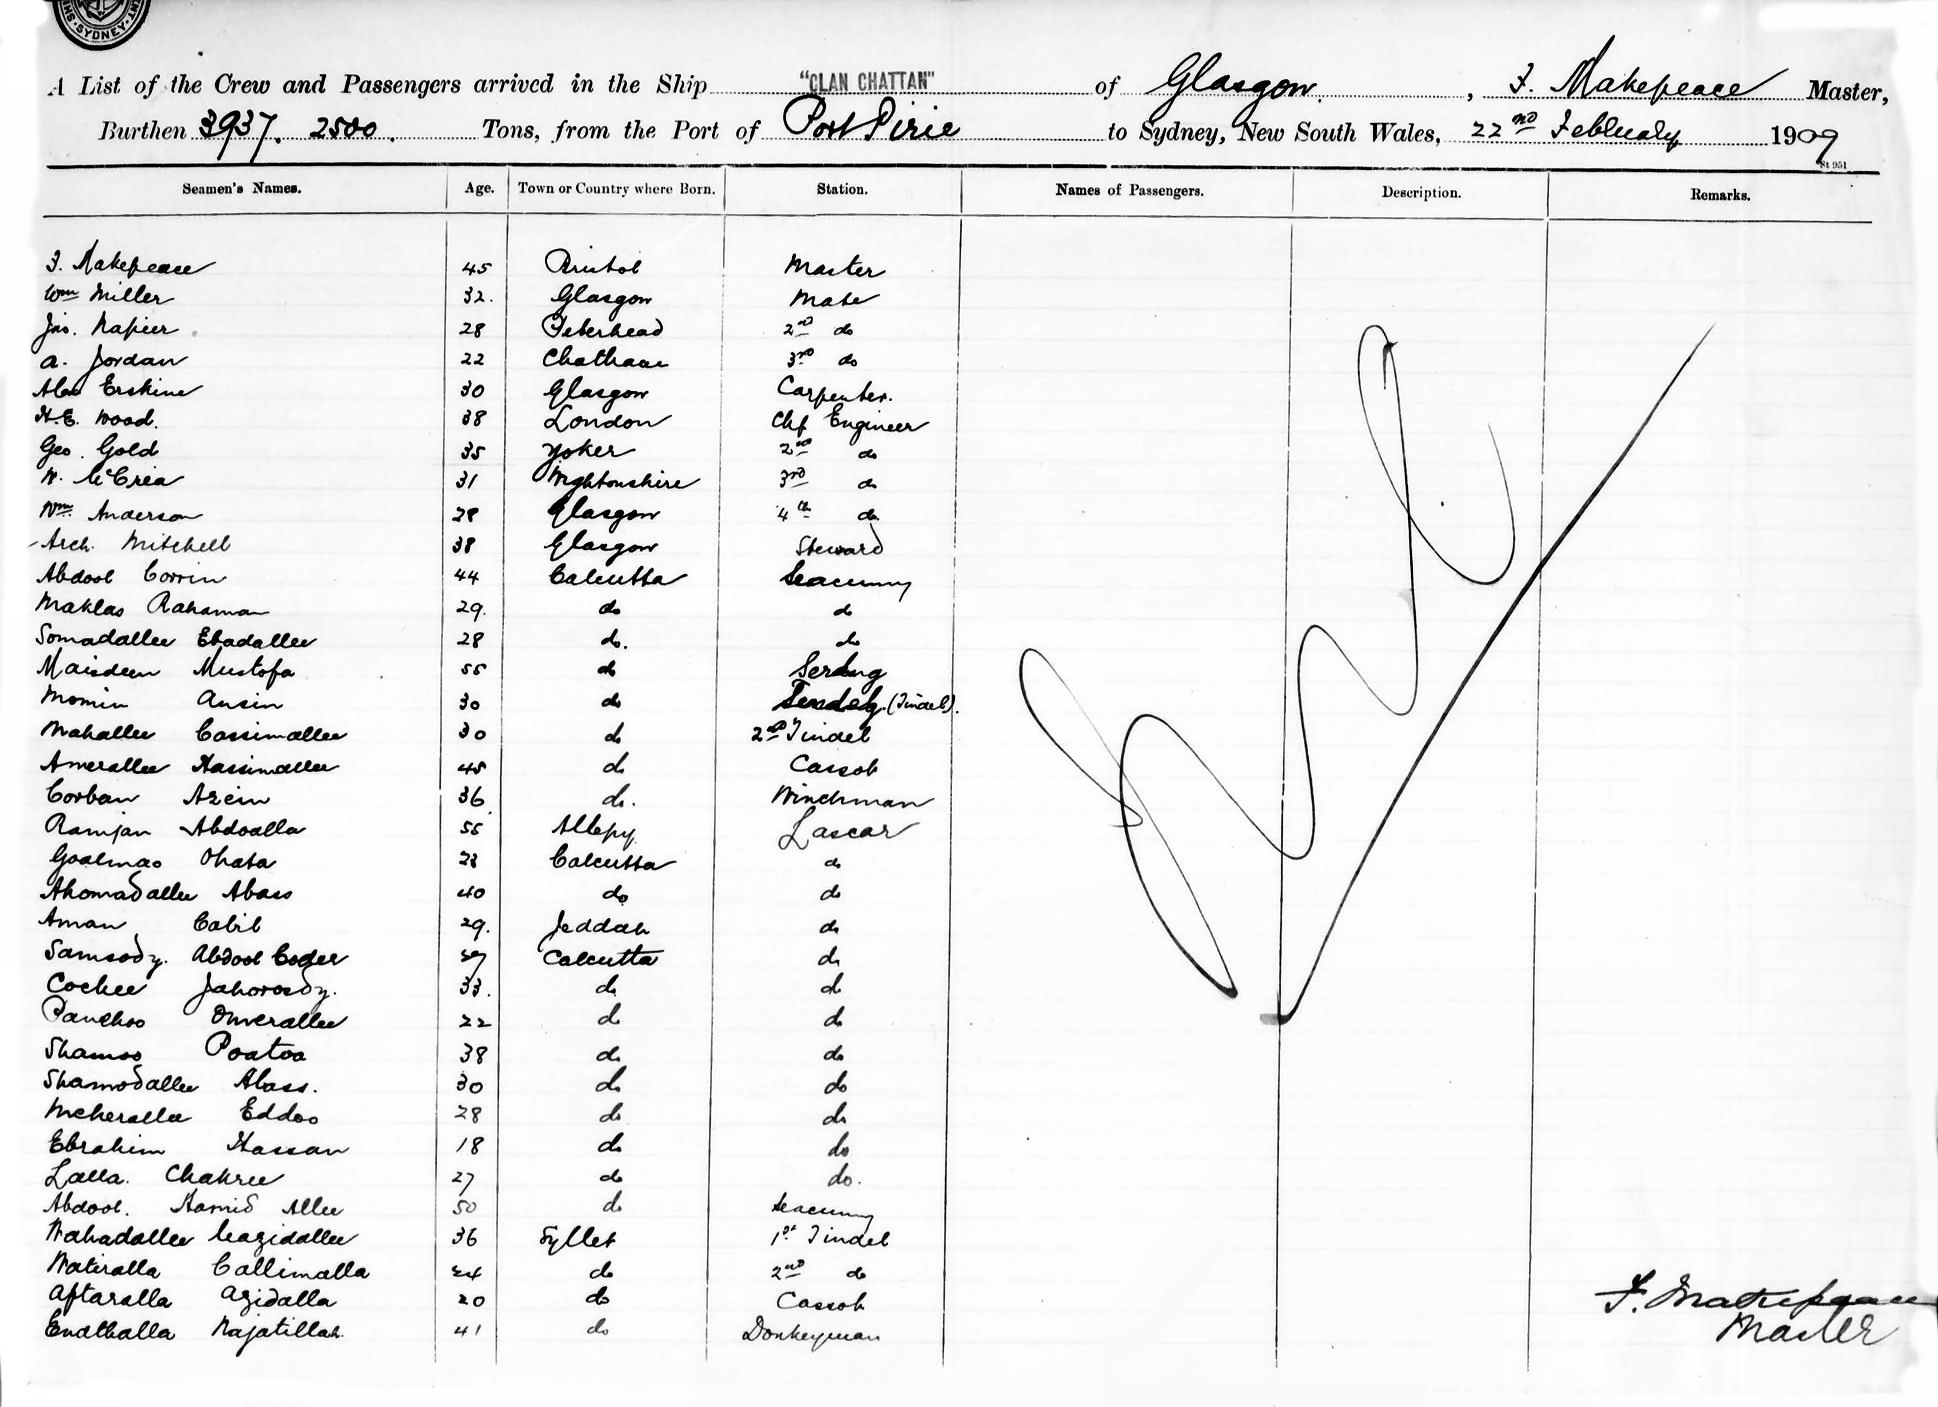 SYDNEY
A List of the Crew and Passengers arrived in the Ship "CLAN CHATTAN" of Glasgow, F. Makepeace Master,
Burthen 3937. 2500. Tons, from the Port of Port Pirie to Sydney, New South Wales, 22nd February 1909
St 951
Seamen's Names. Age. Town or Country where Born. Station. Names of Passengers. Description. Remarks.
F. Makepeace 45 Bristol Master
Wm Miller 32. Glasgow Mate
Jno. Napier 28 Peterhead 2nd do
A. Jordan 22 Chatham 3rd do
Alex Erskine 30 Glasgow Carpenter.
H.E. Wood. 38 London Chf Engineer
Geo. Gold 35 Yoker 2nd do
W. McCrea 31 Wightonshire 3rd do
Wm Anderson 28 Glasgow 4th do
Arch. Mitchell 38 Glasgow Steward
Abdool Corrim 44 Calcutta Seacunny
Maklas Rahaman 29. do do
Somadallee Ebadallee 28 do. do
Maisdeen Mustofa 55 do Serang
Momin Ansin 30 do (Tindel).
Mahallee Cassimallee 30 do 2nd Tindel
Amerallee Hassimallee 45 do Cassob
Corban Azein 36 do. Winchman
Ramjan Abdoalla 55 Allepy Lascar
Goalmao Ohata Calcutta do
Ahomadallee Abass 40 do do
Aman Cabil 29. Jeddah do
Samsody. Abdool Coder Calcutta do
Cochee Jahorosdy. 33. do do
Panchoo Omerallee 22 do do
Shamoo Poatoa 38 do do
Shamodallee Abass. 30 do do
Meheralla Eddoo 28 do do
Ebrahim Hassan 18 do do
Lalla. Chakree 27 do do.
Abdool. Hamid Allee 50 do Seacunny
Wahadallee Wazidallee 36 Syllet 1st Tindel
Watiralla Callimalla do 2nd do
Aftaralla Azidalla 20 do Cassob
Enathalla Najatillah. 41 do Donkeyman
Nil
F. Makepeace
Master